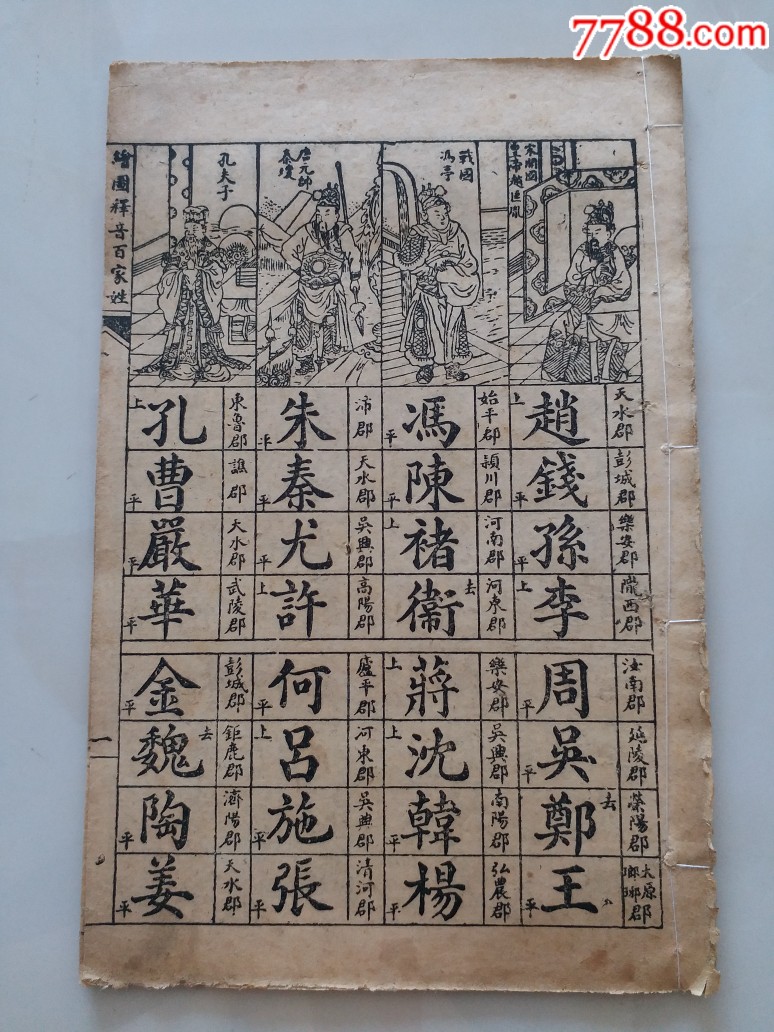 7788.com
宋開國
皇帝趙匡胤
戰國
馮亭
唐元帥
秦瓊
孔夫子
繪圖釋音百家姓
天水郡 彭城郡 樂安郡 隴西郡
趙上 錢平 孫平 李上
始平郡 潁川郡 河南郡 河東郡
馮平 陳平 褚上 衞去
沛郡 天水郡 吳興郡 高陽郡
朱平 秦平 尤平 許上
東魯郡 譙郡 天水郡 武陵郡
孔上 曹平 嚴平 華平
汝南郡 延陵郡 滎陽郡 太原郡瑯琊
周平 吳平 鄭去 王平
樂安郡 吳興郡 南陽郡 弘農郡
蔣上 沈上 韓平 楊平
廬平郡 河東郡 吳興郡 清河郡
何平 呂上 施平 張平
彭城郡 鉅鹿郡 濟陽郡 天水郡
金平 魏去 陶平 姜平
一